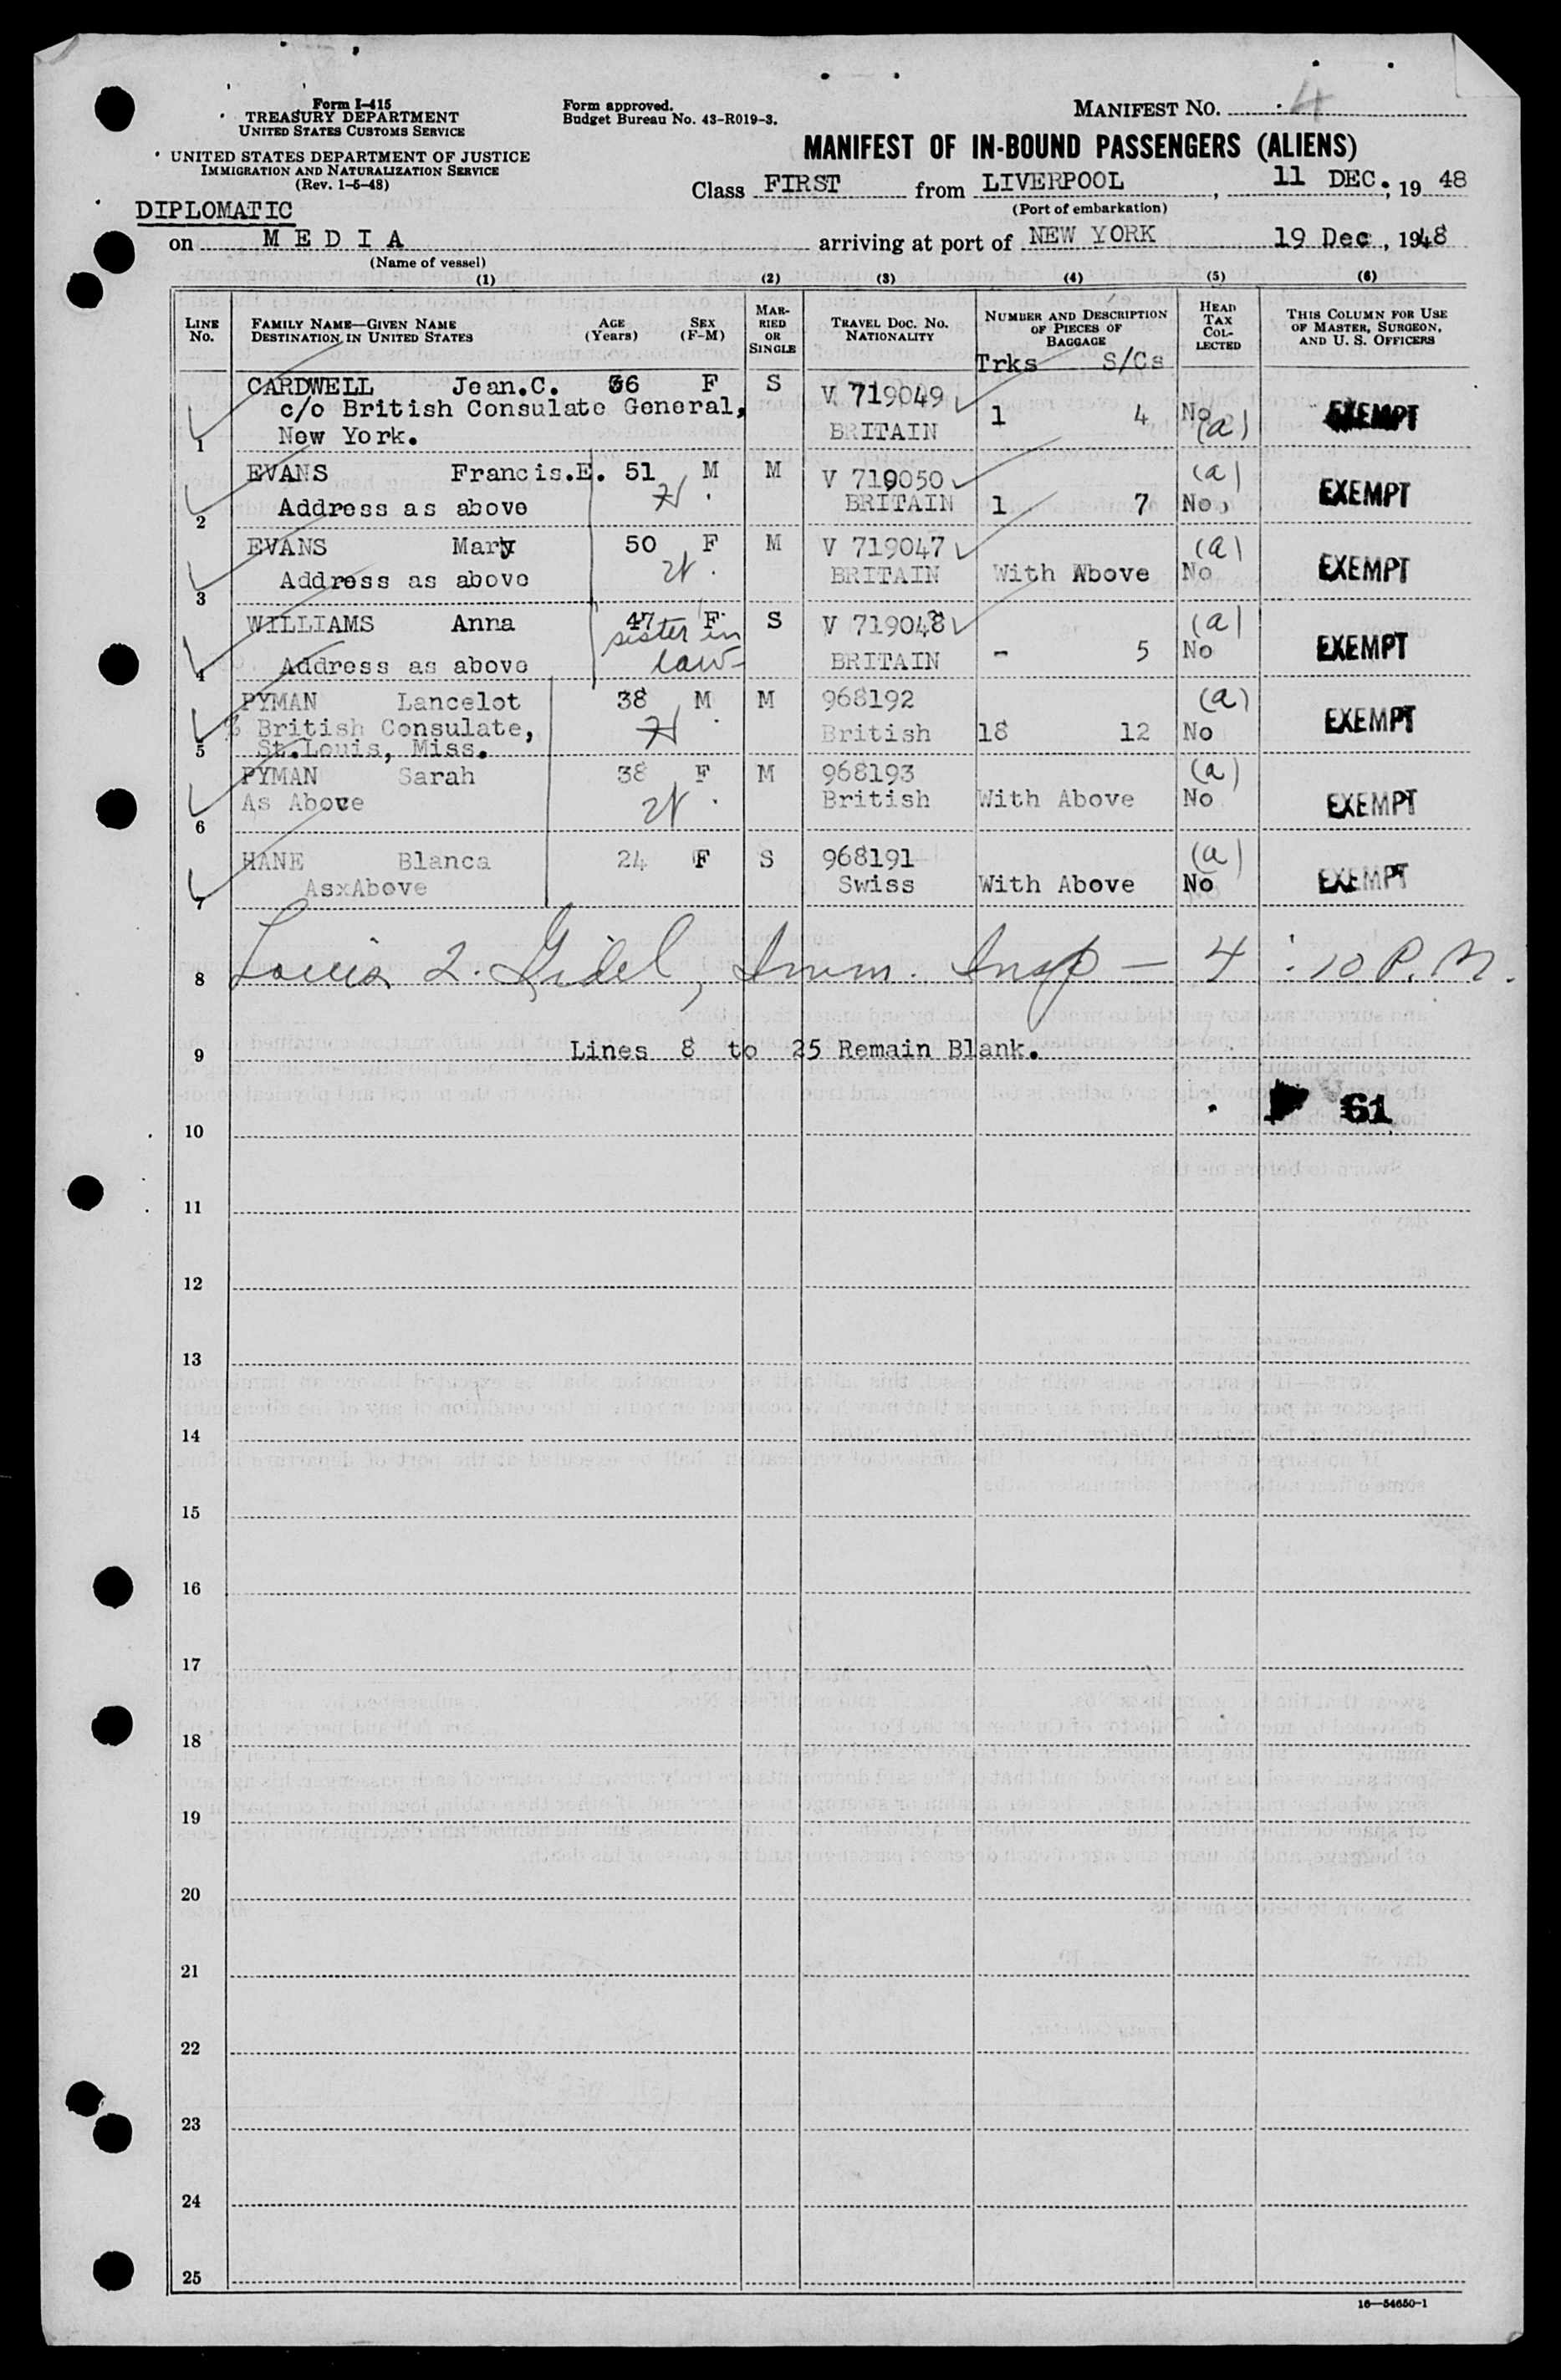 Form I-415
TREASURY DEPARTMENT
UNITED STATES CUSTOMS SERVICE
UNITED STATES DEPARTMENT OF JUSTICE
IMMIGRATION AND NATURALIZATION SERVICE
(Rev. 1-5-48)
Form approved.
Budget Bureau No. 43-R019-3.
MANIFEST NO. 4
MANIFEST OF IN-BOUND PASSENGERS (ALIENS)
Class FIRST from LIVERPOOL, 11 DEC., 19 48
(Port of embarkation)
DIPLOMATIC
on M E D I A arriving at port of NEW YORK 19 Dec, 1948
(Name of vessel)
(1) (2) (3) (4) (5) (6)
LINE NO. FAMILY NAME—GIVEN NAME DESTINATION IN UNITED STATES AGE (Years) SEX (F-M) MARRIED OR SINGLE TRAVEL DOC. NO. NATIONALITY NUMBER AND DESCRIPTION OF PIECES OF BAGGAGE HEAD TAX COLLECTED THIS COLUMN FOR USE OF MASTER, SURGEON, AND U. S. OFFICERS
Trks S/Cs
CARDWELL Jean.C. 36 F S V 719049
c/o British Consulate General, 1 4 No (a) EXEMPT
1 New York. BRITAIN
EVANS Francis.E. 51 M M V 719050 (a)
2 Address as above H BRITAIN 1 7 No, EXEMPT
EVANS Mary 50 F M V 719047 (a)
3 Address as above W BRITAIN With Above No EXEMPT
WILLIAMS Anna 47 F S V 719048 (a)
sister in law
4 Address as above BRITAIN - 5 No EXEMPT
PYMAN Lancelot 38 M M 968192 (a)
% British Consulate, H British 18 12 No EXEMPT
5 St.Louis, Miss.
PYMAN Sarah 38 F M 968193 (a)
As Above W British With Above No EXEMPT
6
HANE Blanca 24 F S 968191 (a)
AsxAbove Swiss With Above No EXEMPT
7
8 Louis L. Gidel, Imm. Insp — 4:10 P.M.
9 Lines 8 to 25 Remain Blank.
61
10
11
12
13
14
15
16
17
18
19
20
21
22
23
24
25
16—54650-1